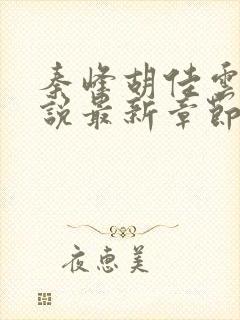 秦峰胡佳雲
說最新章節
夜惠美